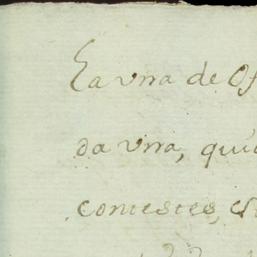 La vna de Of
da vna, qu
contestes,